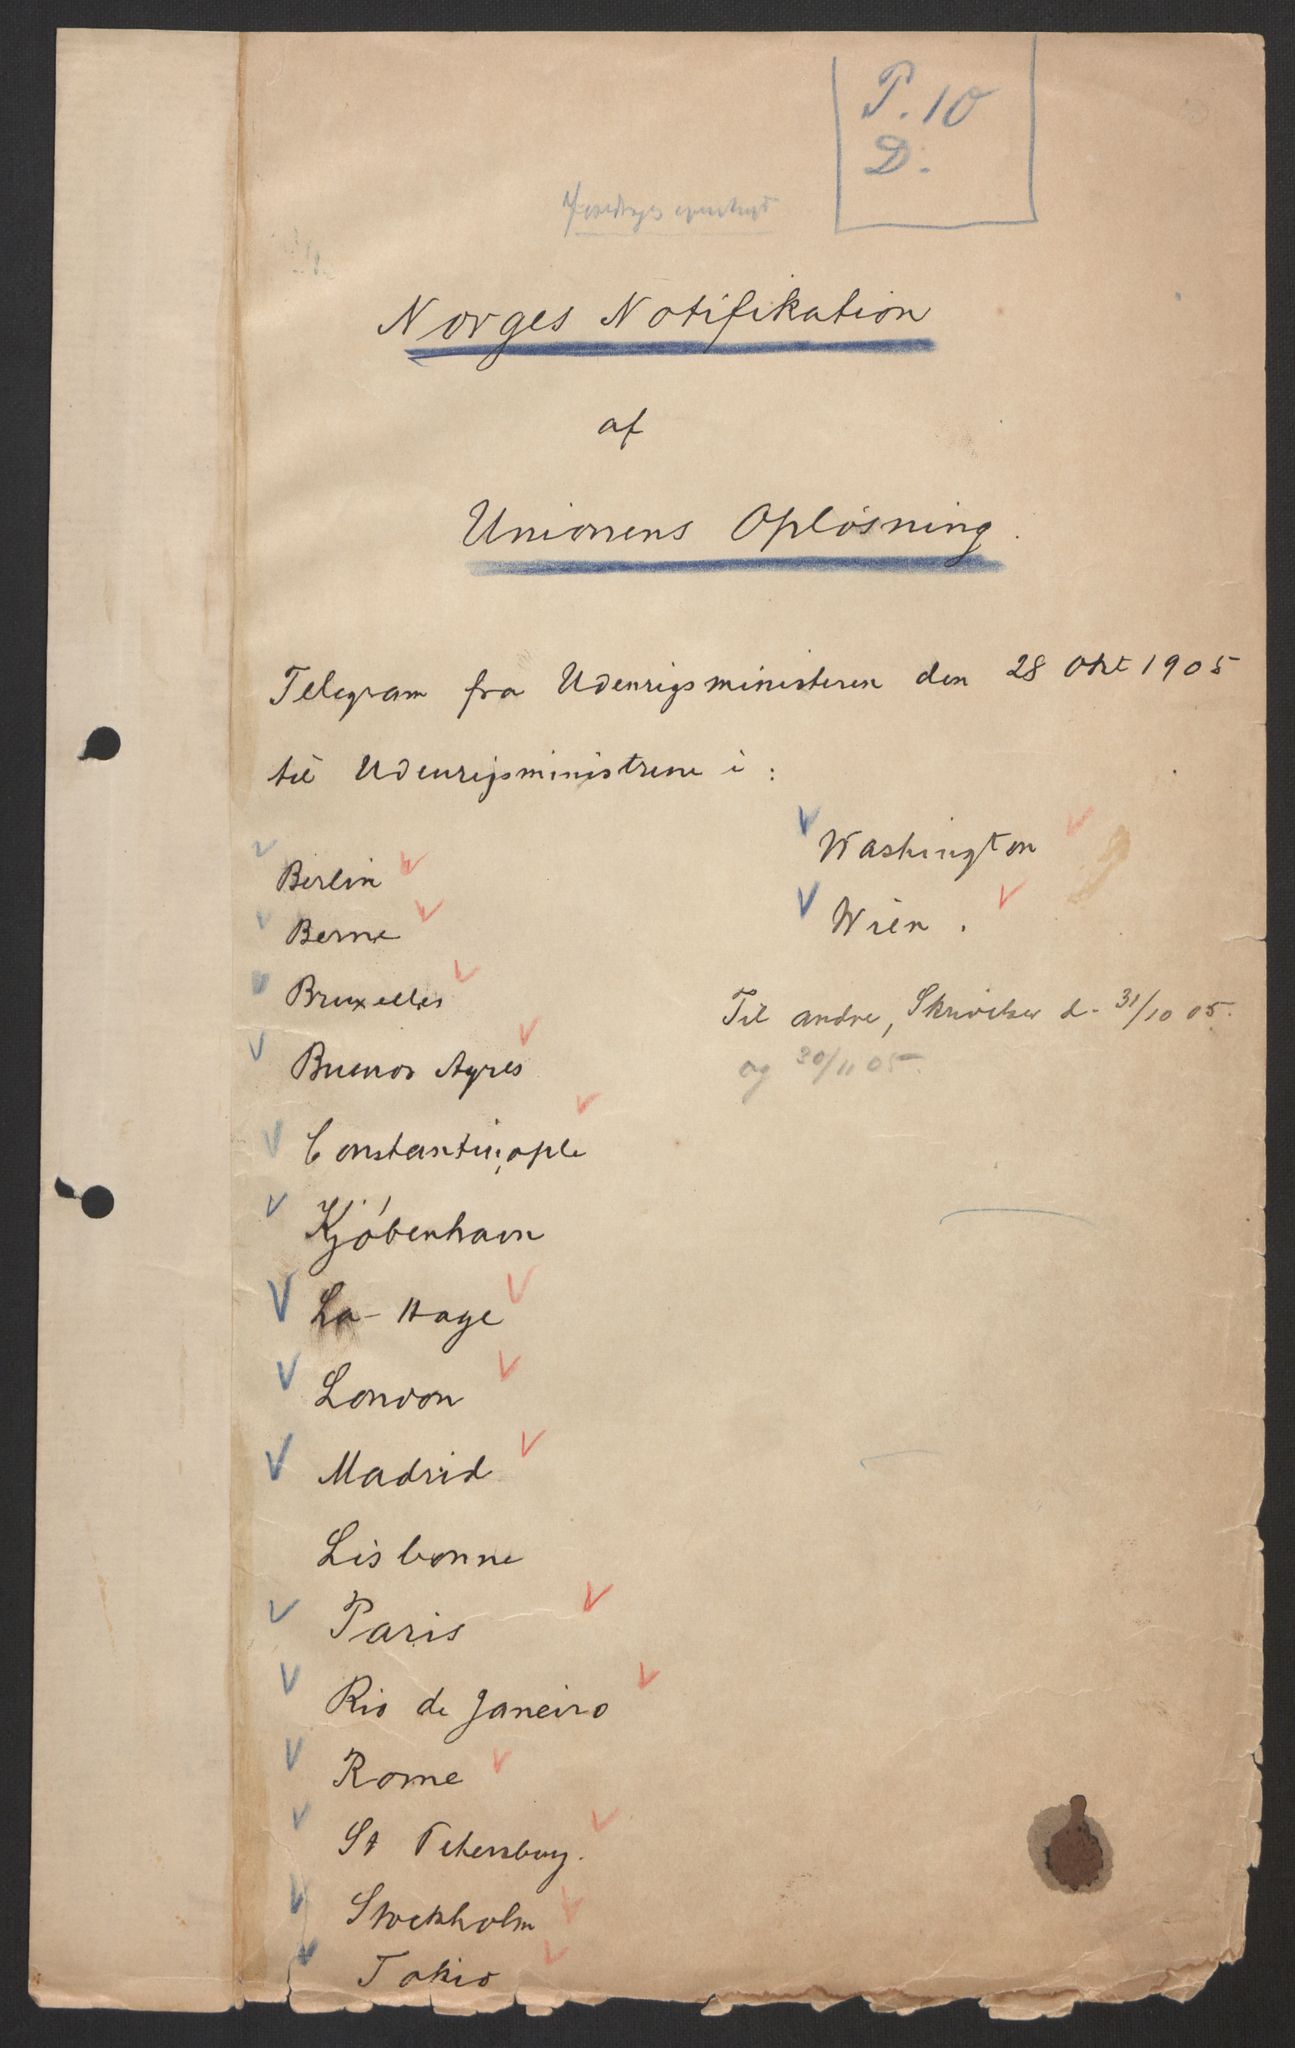 P. 10
D.
Norges Notifikation
af
Unionens Opløsning.
Telegram fra Udenrigsministeren den 28 Okt 1905
til Udenrigsministrene i :
Berlin
Berne
Bruxelles
Buenos Ayres
Constantinople
Kjøbenhavn
La-Haye
London
Madrid
Lisbonne
Paris
Rio de Janeiro
Rome
St Petersburg.
Stockholm
Tokio
Washington
Wien.
Til andre, Skrivelser d. 31/10 05.
og 20/11 05.